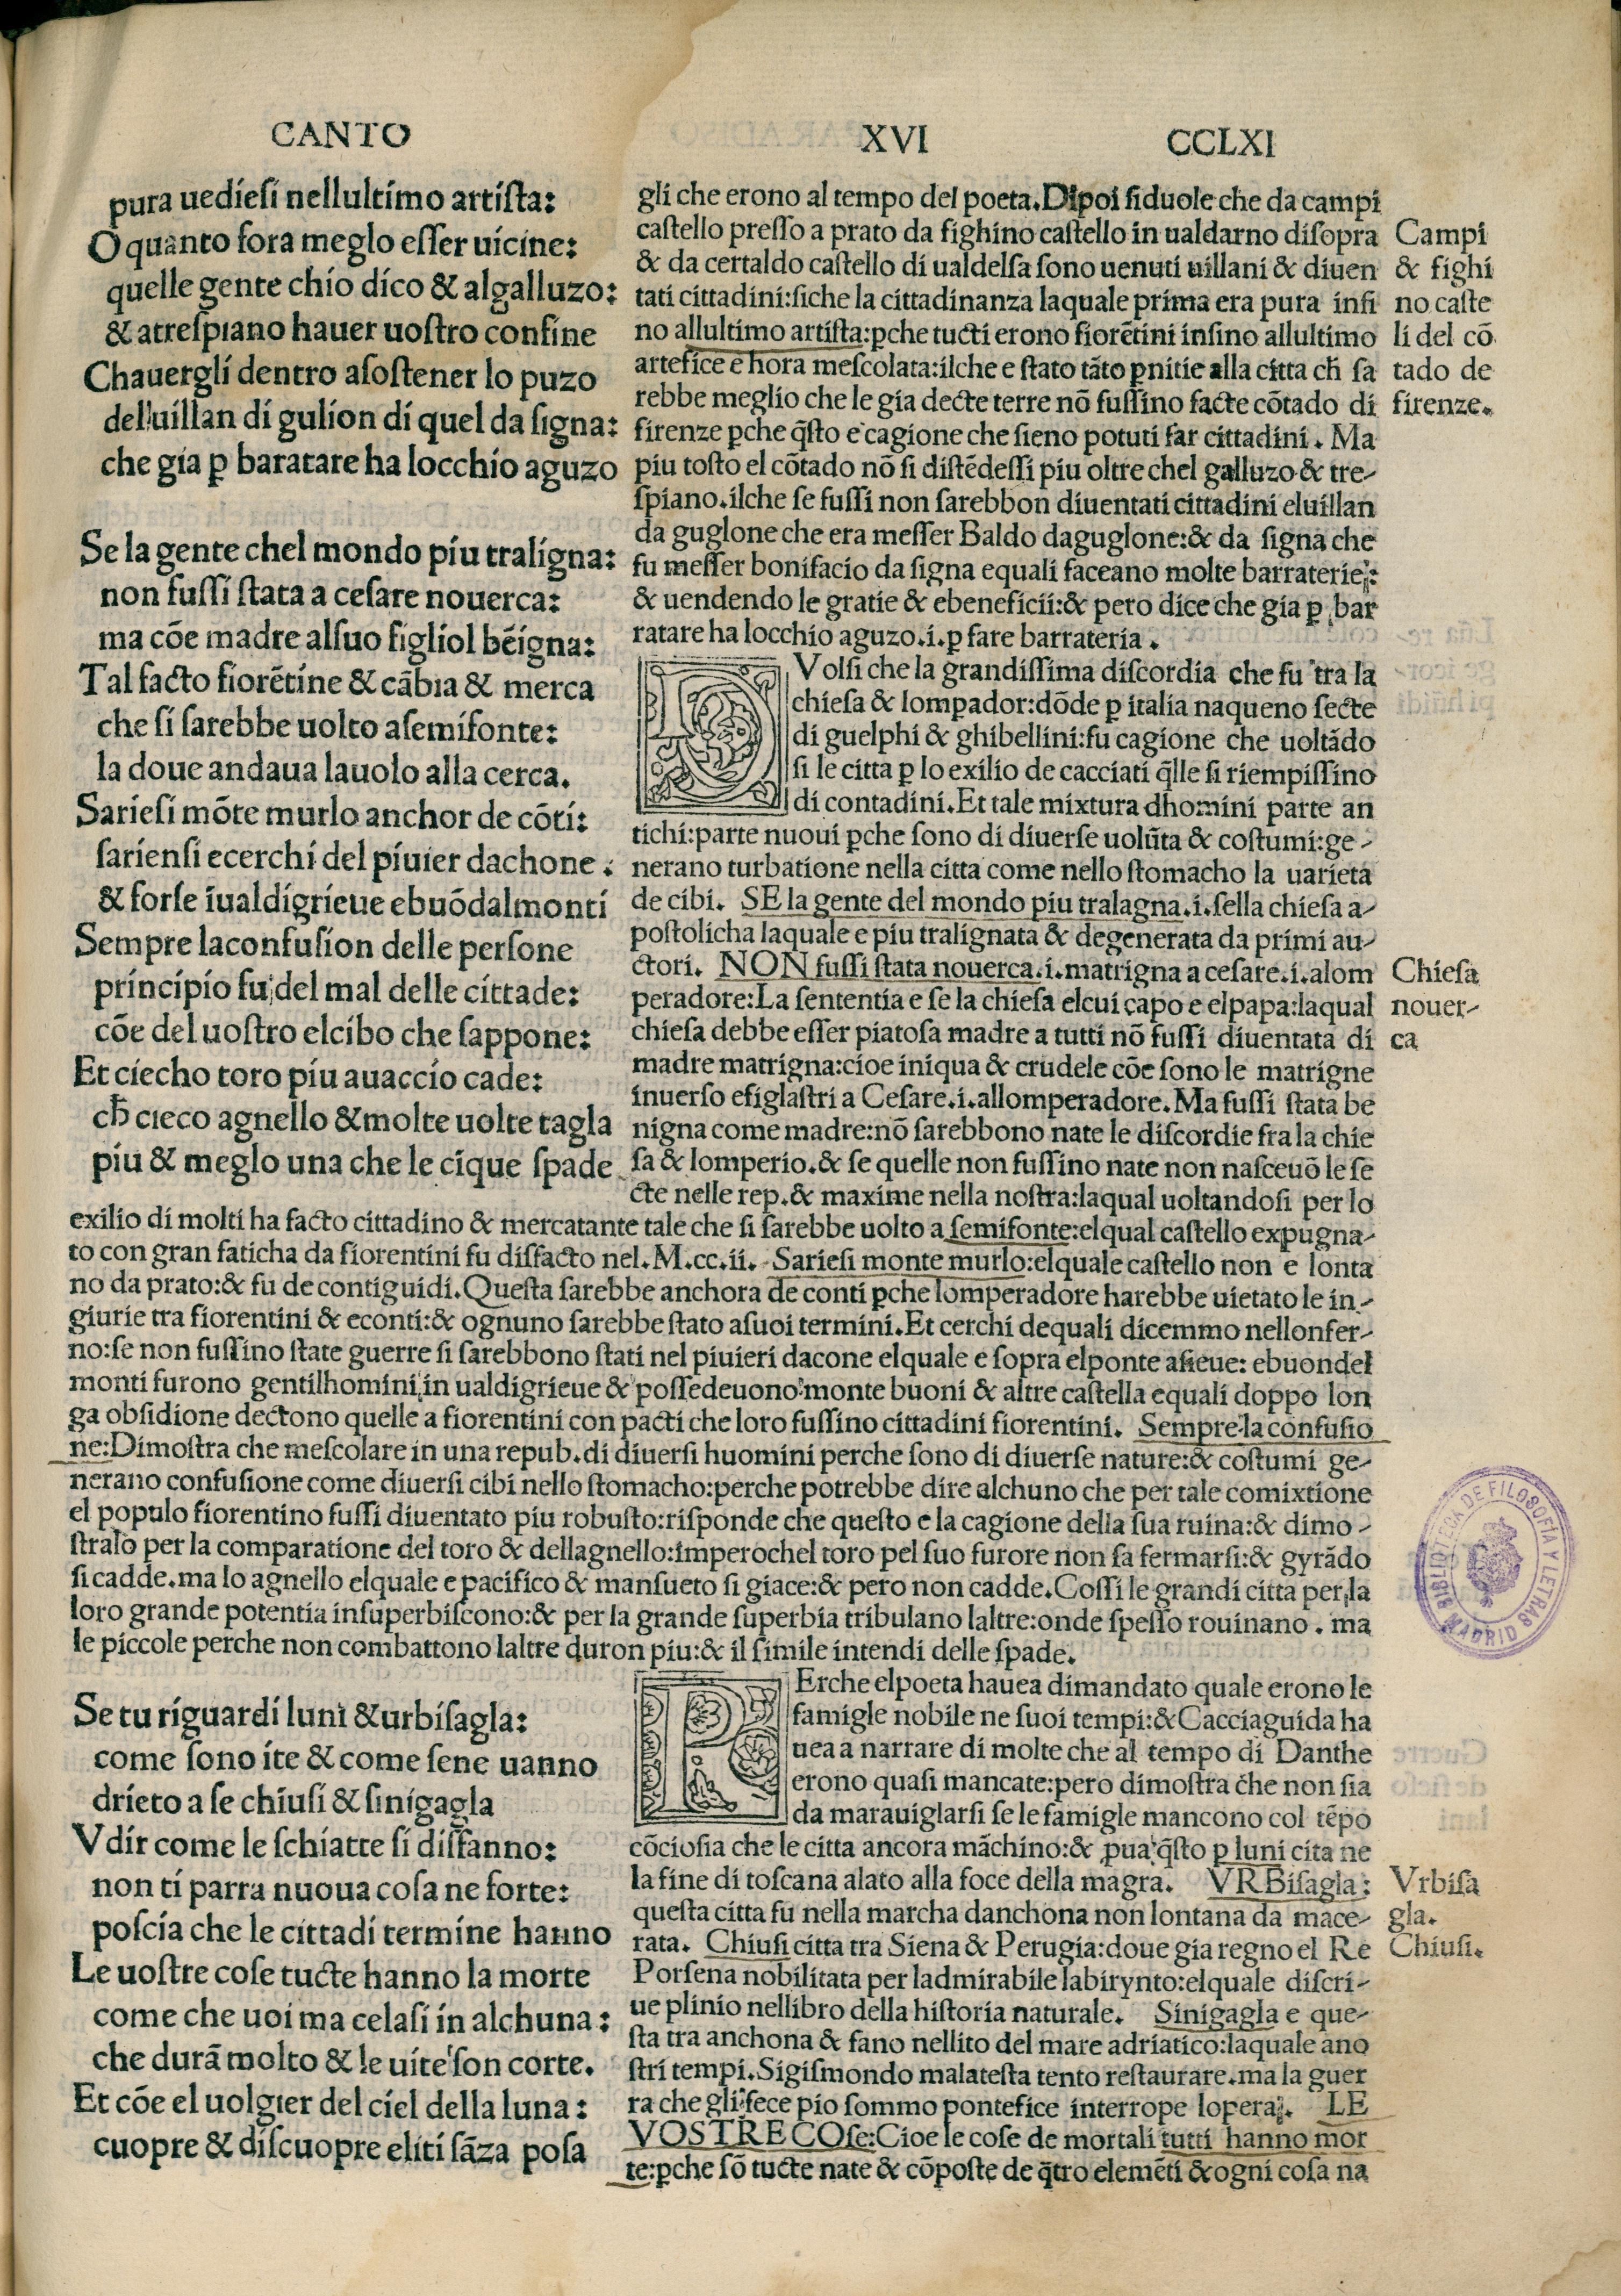 CANTO XVI CCLXI
pura uediesi nellultimo artista:
O quanto fora meglo esser uicine:
quelle gente chio dico & algalluzo:
& atrespiano hauer uostro confine
Chauergli dentro asostener lo puzo
deluillan di gulion di quel da signa:
che gia ꝑ baratare ha locchio aguzo
Se la gente chel mondo piu traligna:
non fussi stata a cesare nouerca:
ma cōe madre alsuo figliol bēigna:
Tal facto fiorētine & cābia & merca
che si sarebbe uolto asemifonte:
la doue andaua lauolo alla cerca.
Sariesi mōte murlo anchor de cōti:
sariensi ecerchi del piuier dachone:
& forse īualdigrieue ebuōdalmonti
Sempre laconfusion delle persone
principio fu del mal delle cittade:
cōe del uostro elcibo che sappone:
Et ciecho toro piu auaccio cade:
ch̄ cieco agnello & molte uolte tagla
piu & meglo una che le cīque spade
gli che erono al tempo del poeta. Dipoi siduole che da campi
castello presso a prato da fighino castello in ualdarno disopra
& da certaldo castello di ualdelsa sono uenuti uillani & diuen
tati cittadini: siche la cittadinanza laquale prima era pura insi
no allultimo artista: ꝑche tucti erono fiorētini insino allultimo
artefice e hora mescolata: ilche e stato tāto ꝑnitie alla citta ch̄ sa
rebbe meglio che le gia decte terre nō fussino facte cōtado di
firenze ꝑche q̄sto e cagione che sieno potuti far cittadini. Ma
piu tosto el cōtado nō si distēdessi piu oltre chel galluzo & tre-
spiano. ilche se fussi non sarebbon diuentati cittadini eluillan
da guglone che era messer Baldo daguglone: & da signa che
fu messer bonifacio da signa equali faceano molte barraterie:
& uendendo le gratie & ebeneficii: & pero dice che gia ꝑ bar
ratare ha locchio aguzo. i. ꝑ fare barrateria.
Campi
& fighi
no caste
li del cō
tado de
firenze.
Volsi che la grandissima discordia che fu tra la
chiesa & lomꝑador: dōde ꝑ italia naqueno secte
di guelphi & ghibellini: fu cagione che uoltādo
si le citta ꝑ lo exilio de cacciati q̄lle si riempissino
di contadini. Et tale mixtura dhomini parte an
tichi: parte nuoui ꝑche sono di diuerse uolūta & costumi: ge-
nerano turbatione nella citta come nello stomacho la uarieta
de cibi. SE la gente del mondo piu tralagna. i. sella chiesa a-
postolicha laquale e piu tralignata & degenerata da primi au-
ctori. NON fussi stata nouerca. i. matrigna a cesare. i. alom
peradore: La sententia e se la chiesa elcui capo e elpapa: laqual
chiesa debbe esser piatosa madre a tutti nō fussi diuentata di
madre matrigna: cioe iniqua & crudele cōe sono le matrigne
inuerso efiglastri a Cesare. i. allomperadore. Ma fussi stata be
nigna come madre: nō sarebbono nate le discordie fra la chie
sa & lomperio. & se quelle non fussino nate non nasceuō le se
cte nelle rep. & maxime nella nostra: laqual uoltandosi per lo
Chiesa
nouer-
ca
exilio di molti ha facto cittadino & mercatante tale che si sarebbe uolto a semifonte: elqual castello expugna-
to con gran faticha da fiorentini fu disfacto nel. M. cc. ii. Sariesi monte murlo: elquale castello non e lonta
no da prato: & fu de contiguidi. Questa sarebbe anchora de conti ꝑche lomperadore harebbe uietato le in-
giurie tra fiorentini & econti: & ognuno sarebbe stato asuoi termini. Et cerchi dequali dicemmo nellonfer-
no: se non fussino state guerre si sarebbono stati nel piuieri dacone elquale e sopra elponte asieue: ebuondel
monti furono gentilhomini in ualdigrieue & possedeuono monte buoni & altre castella equali doppo lon
ga obsidione dectono quelle a fiorentini con pacti che loro fussino cittadini fiorentini. Sempre la confusio
ne: Dimostra che mescolare in una repub. di diuersi huomini perche sono di diuerse nature: & costumi ge-
nerano confusione come diuersi cibi nello stomacho: perche potrebbe dire alchuno che per tale comixtione
el populo fiorentino fussi diuentato piu robusto: risponde che questo e la cagione della sua ruina: & dimo-
stralo per la comparatione del toro & dellagnello: imperochel toro pel suo furore non sa fermarsi: & gyrādo
si cadde. ma lo agnello elquale e pacifico & mansueto si giace: & pero non cadde. Cossi le grandi citta per la
loro grande potentia insuperbiscono: & per la grande superbia tribulano laltre: onde spesso rouinano. ma
le piccole perche non combattono laltre duron piu: & il simile intendi delle spade.
Se tu riguardi luni & urbisagla:
come sono ite & come sene uanno
drieto a se chiusi & sinigagla
Vdir come le schiatte si disfanno:
non ti parra nuoua cosa ne forte:
poscia che le cittadi termine hanno
Le uostre cose tucte hanno la morte
come che uoi ma celasi in alchuna:
che durā molto & le uite son corte.
Et cōe el uolgier del ciel della luna:
cuopre & discuopre eliti sāza posa
PErche elpoeta hauea dimandato quale erono le
famigle nobile ne suoi tempi: & Cacciaguida ha
uea a narrare di molte che al tempo di Danthe
erono quasi mancate: pero dimostra che non sia
da marauiglarsi se le famigle mancono col tēpo
cōciosia che le citta ancora māchino: & ꝓua q̄sto ꝑ luni cita ne
la fine di toscana alato alla foce della magra. VRBisagla:
questa citta fu nella marcha danchona non lontana da mace-
rata. Chiusi citta tra Siena & Perugia: doue gia regno el Re
Porsena nobilitata per ladmirabile labirynto: elquale discri-
ue plinio nellibro della historia naturale. Sinigagla e que-
sta tra anchona & fano nellito del mare adriatico: laquale ano
stri tempi. Sigismondo malatesta tento restaurare. ma la guer
ra che gli fece pio sommo pontefice interrope lopera. LE
VOSTRE COse: Cioe le cose de mortali tutti hanno mor
te: ꝑche sō tucte nate & cōposte de q̄tro elemēti & ogni cosa na
Vrbisa
gla.
Chiusi.
BIBLIOTECA DE FILOSOFÍA Y LETRAS
MADRID